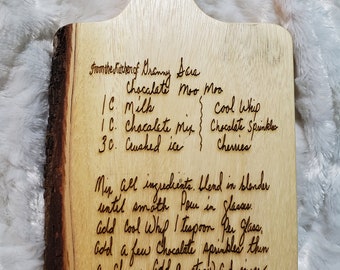 From the Kitchen of Granny Sara
Chocolate Moo Moo
1 C. Milk Cool Whip
1 C. Chocolate Mix Chocolate Sprinkles
3 C. Crushed ice Cherries
Mix all ingredients, blend in blender
until smooth Pour in glasses
add Cool Whip 1 teaspoon Per Glass,
add a few Chocolate sprinkles then